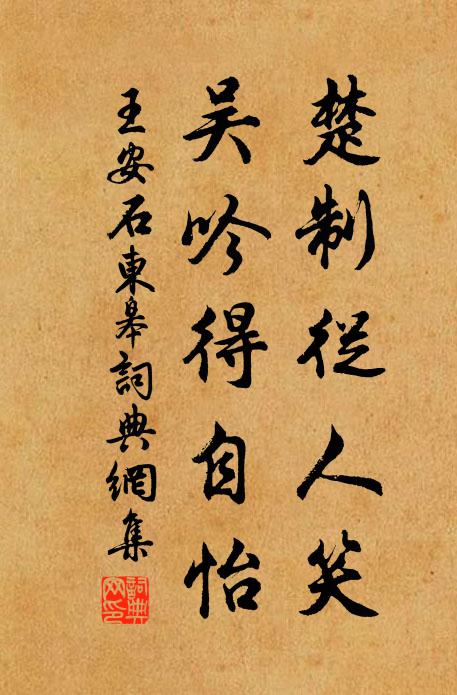 楚制從人笑
吳吟得自怡
王安石東皋詞典網集
詞典
网印